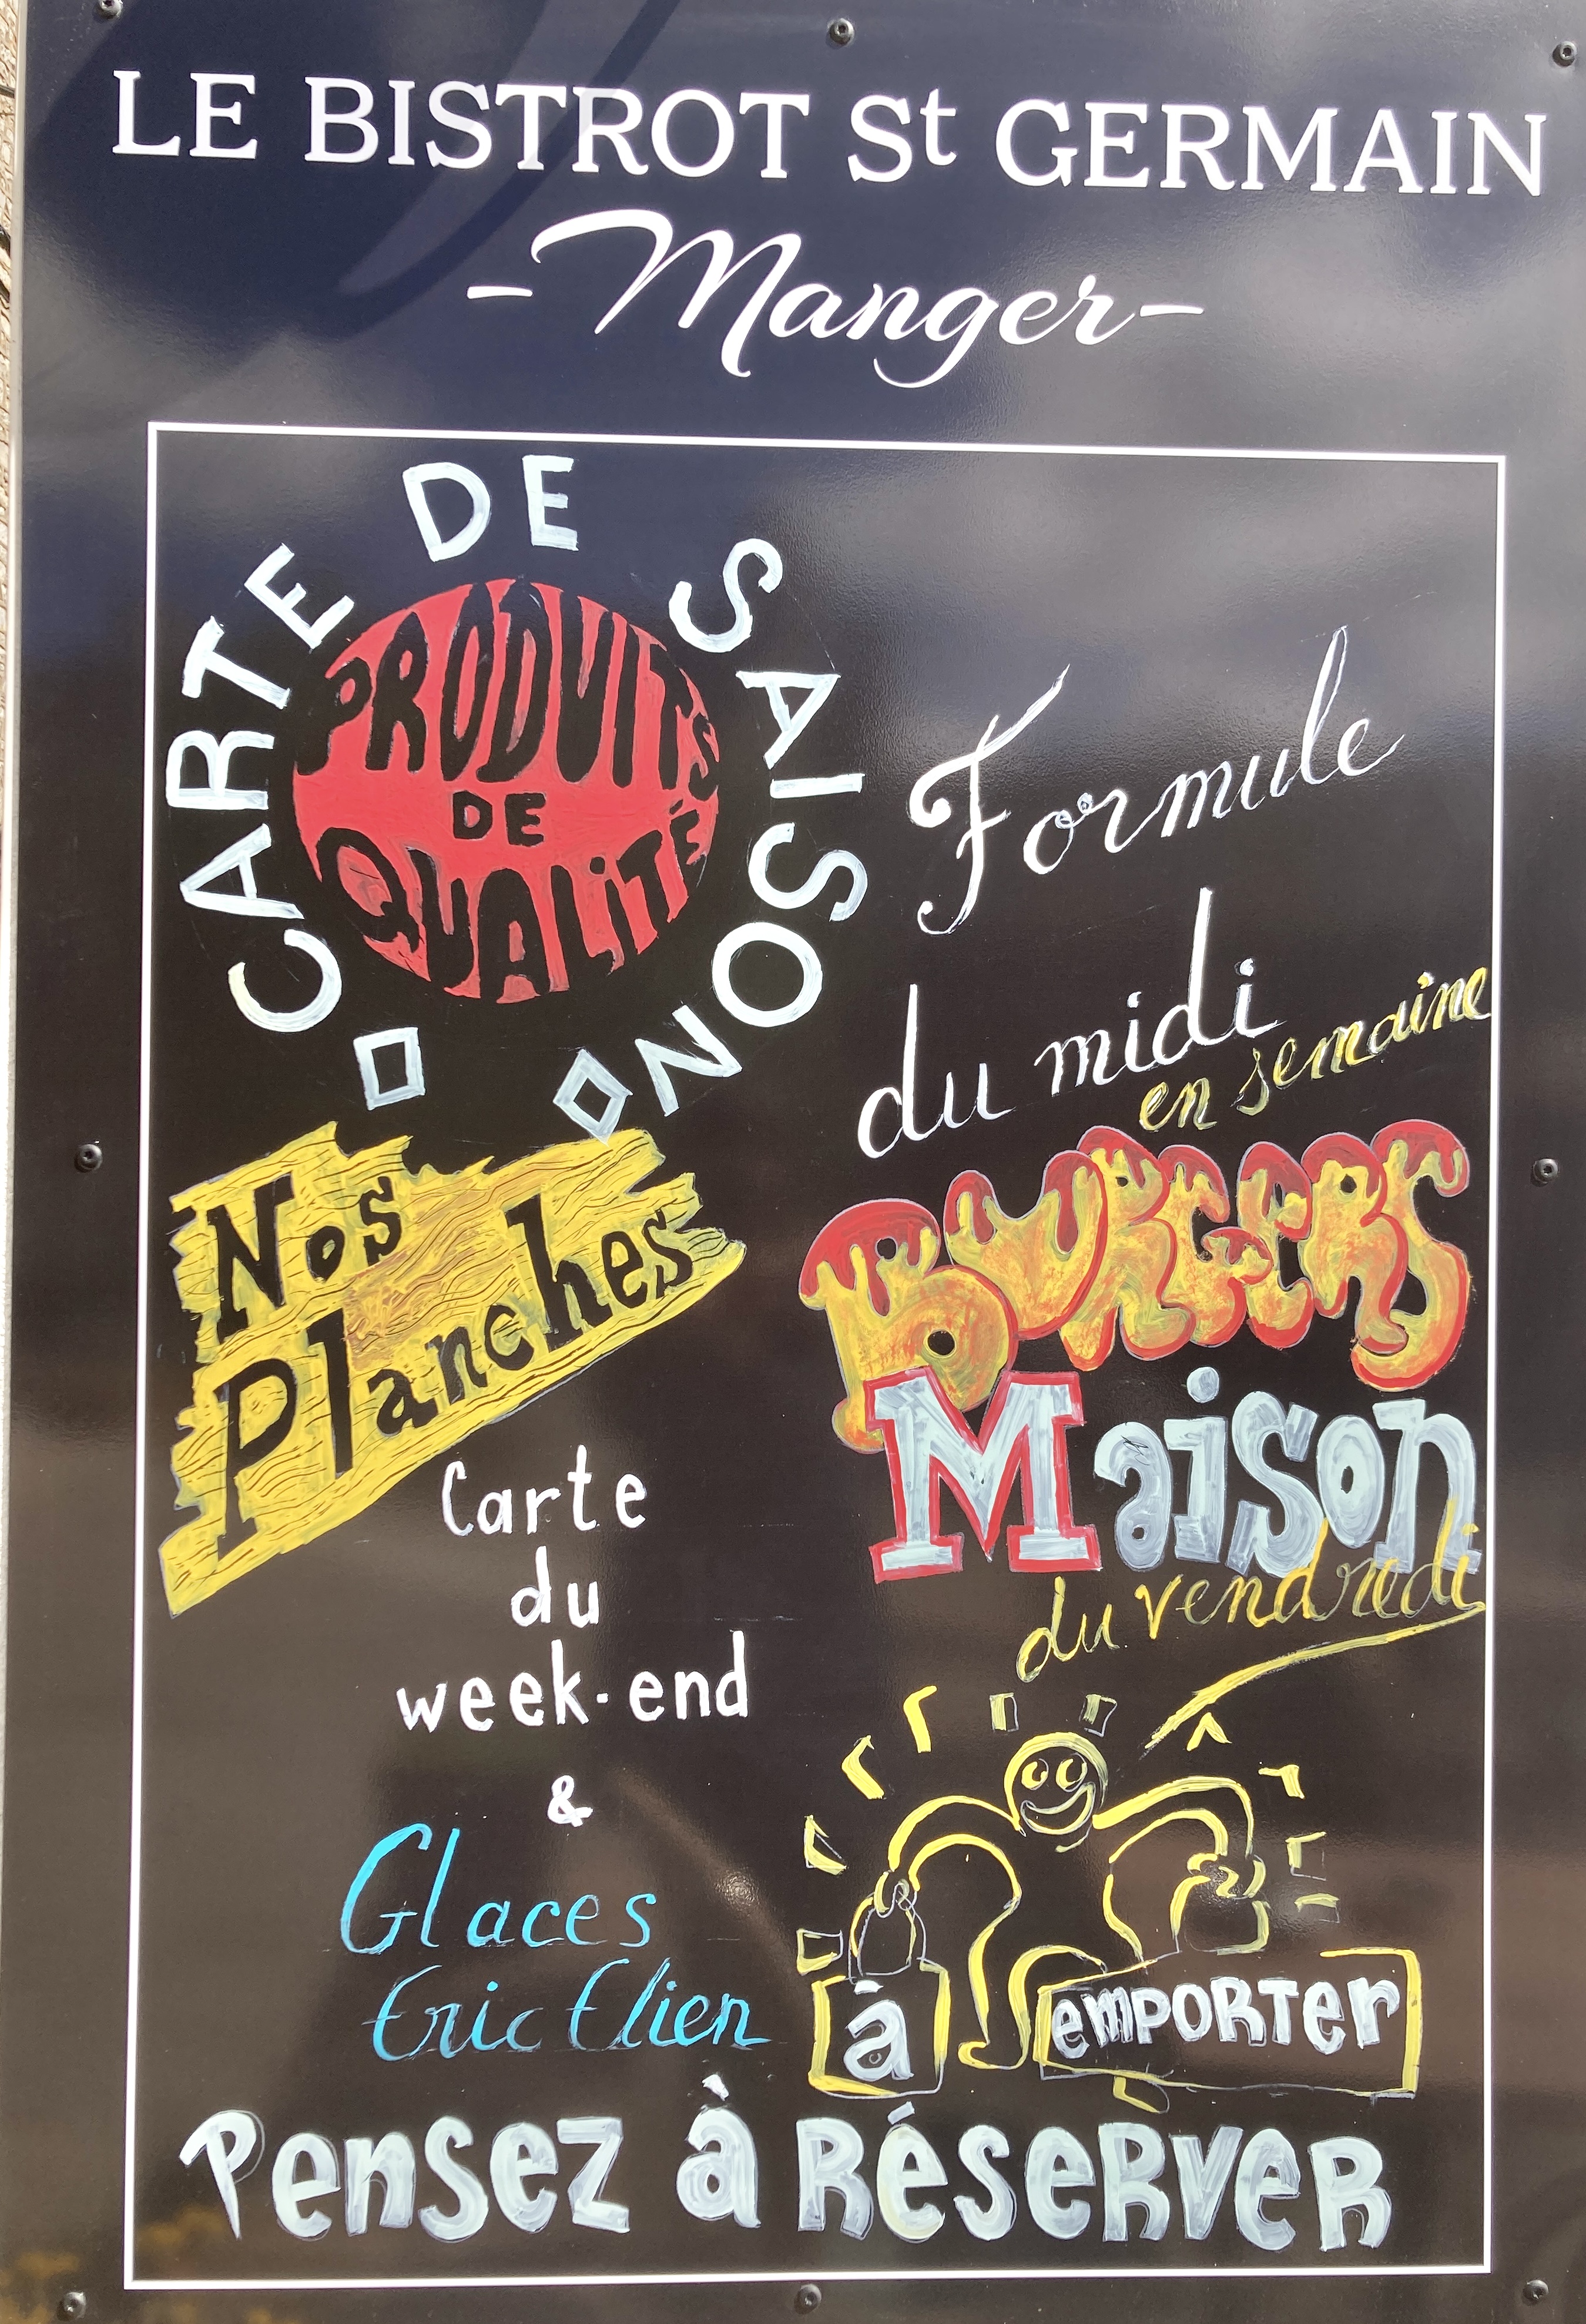 LE BISTROT St GERMAIN
- Manger -
CARTE DE SAISON
PRODUITS
DE
QUALiTÉ
Formule
du midi
en semaine
Nos
Planches
BURGERS
Maison
du vendredi
Carte
du
week-end
&
Glaces
Eric Elien
à emPORTer
Pensez à RéseRveR